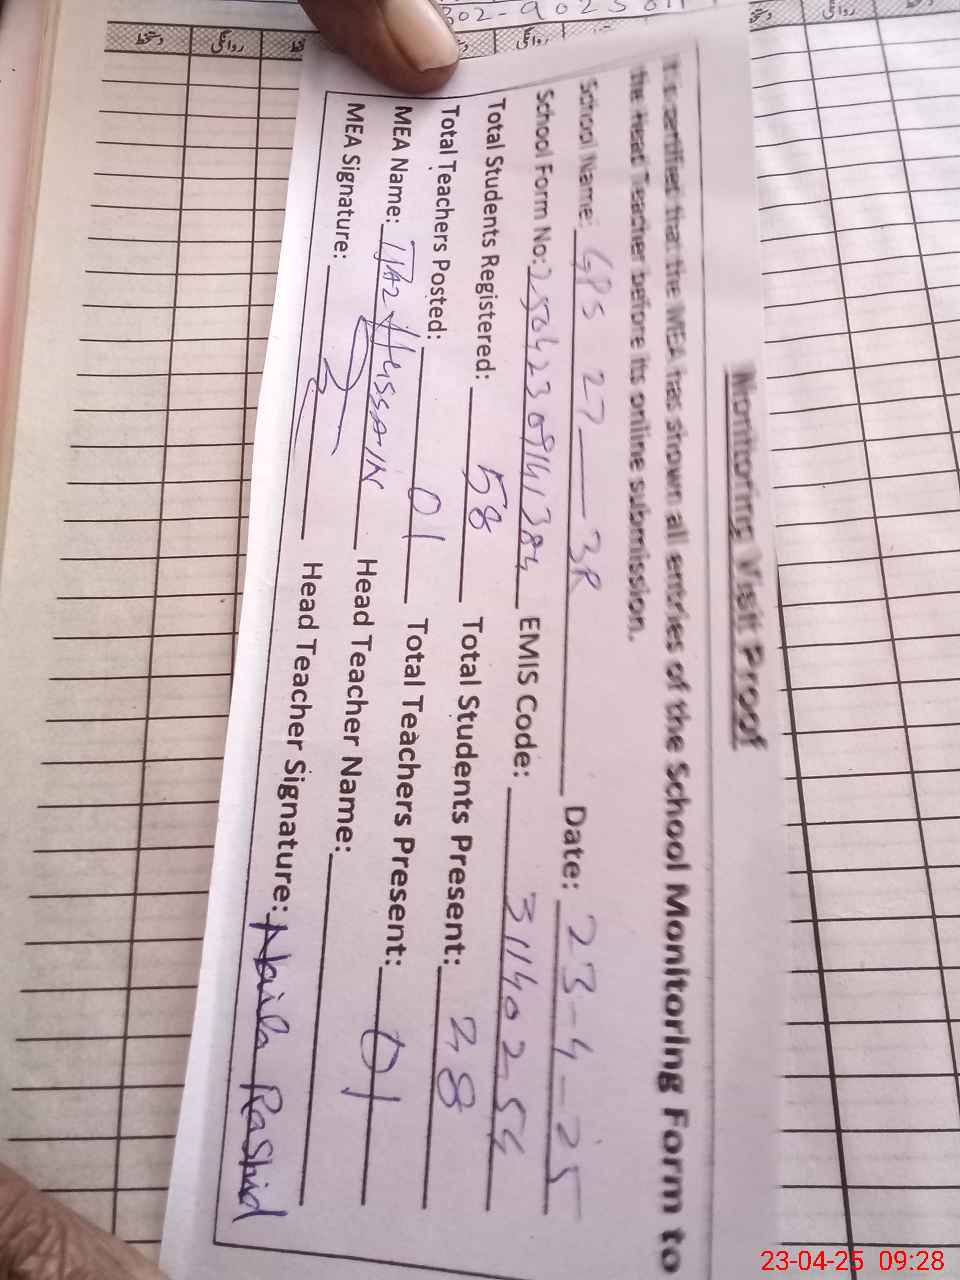 Monitoring Visit Proof
It is certified that the MEA has shown all entries of the School Monitoring Form to
the Head Teacher before its online submission.
School Name: GPS 27__3R Date: 23-4-25
School Form No: 25042309141384 EMIS Code: 31140254
Total Students Registered: 58 Total Students Present: 28
Total Teachers Posted: 01 Total Teachers Present: 01
MEA Name: IJAZ HUSSAIN Head Teacher Name:
MEA Signature: Head Teacher Signature: Naila Rashid
23-04-25 09:28